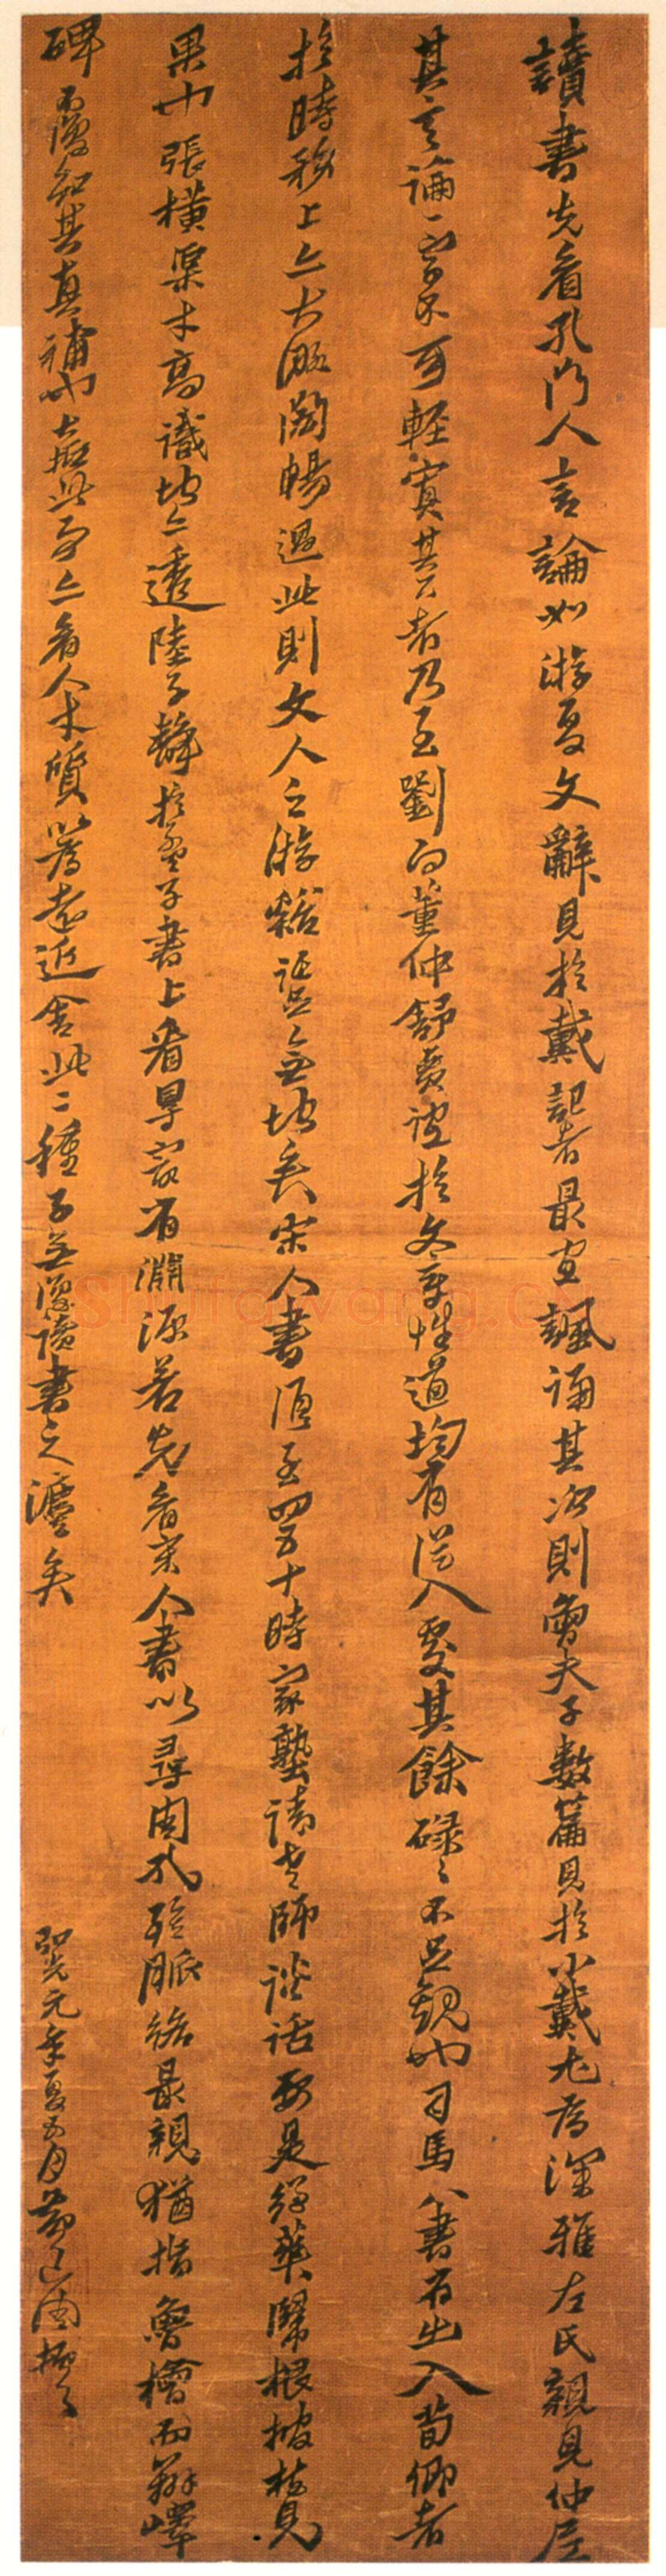 讀書先看孔門人言論如游夏文辭見於戴記者最宜諷誦其次則魯夫子數篇見於小戴尤為深雅左氏親見仲尼
其言論一字不可輕寘其者乃至劉向董仲舒賈誼於文章性道均有從入處其餘碌々不足觀也司馬八書有出入荀卿者
於時務上亦大激闊暢過此則文人之游無地矣宋人書須至四五十時家塾請老師談話要是綏華歸根披枝見
果也張橫渠才高識地亦透陸子靜於孟子書上看得最有淵源若先看宋人書以尋周孔殊脈絡最親猶指魯檜而辭嶧
碑覆知其真穗也嘉此多亦看人才質以為遠近舍此二種子無復讀書之瀍矣
弘光元年夏五月黃道周
Shufawang.CN